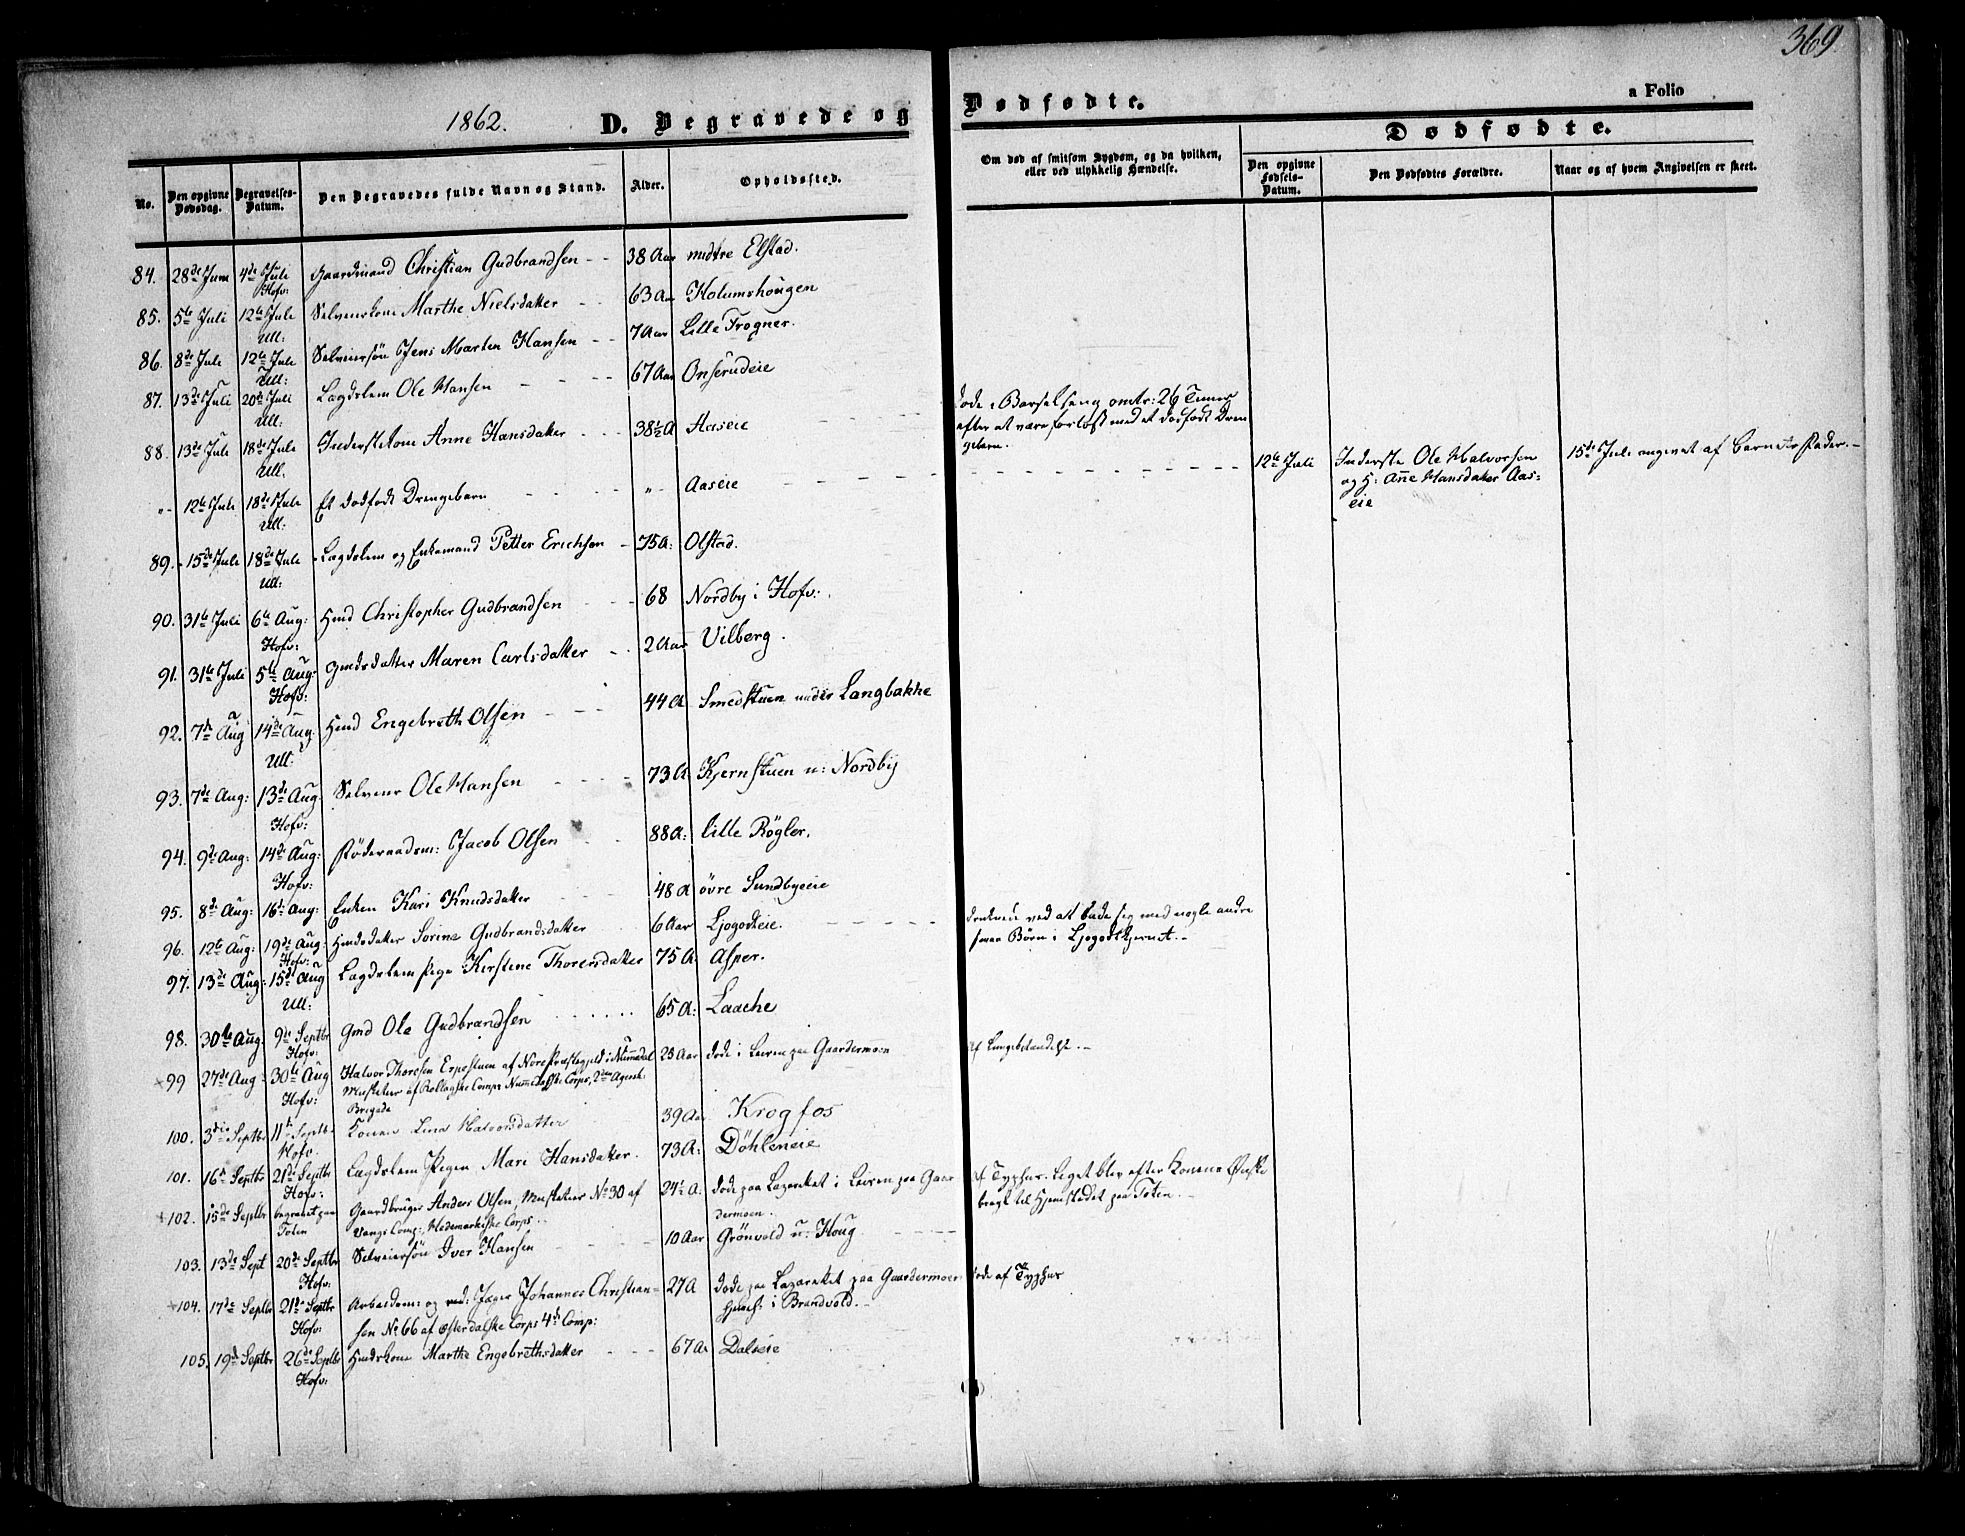 369.
a Folio
1862. D. Begravede og Dødfødte.
Dødfødte.
No.
Den opgivne Dødsdag.
Begravelses-Datum.
Den Begravedes fulde Navn og Stand.
Alder.
Opholdssted.
Om død af smitsom Sygdom, og da hvilken,
eller ved ulykkelig Hændelse.
Den opgivne Fødsels-Datum.
Den Dødfødtes Forældre.
Naar og af hvem Angivelsen er skeet.
84. 28de Juni 4de Juli Gaardmand Christian Gudbrandsen - - 38 Aar midtre Elstad.
Hofv:
85. 5te Juli 12te Juli Selveierkone Marthe Nielsdatter - - 63 Aar Holumshougen
Ull:
86. 8de Juli 12te Juli Selveiersøn Jens Marten Hansen - - 7 Aar Lille Frogner.
Ull:
87. 13de Juli 20de Juli Lægdslem Ole Hansen - - - - 67 Aar Onserudeie
Ull:
88. 13de Juli 18de Juli Inderstekone Anne Hansdatter - - - 38½ A Aaseie
døde i Barselseng omtr: 26 Timer
efter at være forløst med et dødfødt Dren
gebarn.
Ull.
"- 12te Juli 18de Juli Et dødfødt Drengebarn - - - - "- Aaseie - - - -
12te Juli Inderste Ole Halvorsen
og H: Anne Hansdatter Aas-
eie
15de Juli angivet af Barnets Fader. -
Ull:
89. 15de Juli 18de Juli Lægdslem og Enkemand Petter Erichsen - 75 A: Olstad.
Ull:
90. 31te Juli 6te Aug: Hmd Christopher Gudbrandsen - - - 68 Nordby i Hofv:
Hofv:
91. 31te Juli 5te Aug: Gmdsdatter Maren Carlsdatter - - 2 Aar Vilberg.
Hofv:
92. 7de Aug 14de Aug. Hmd Engebreth Olsen - - - 44 A Smedstuen under Langbakke
Ull:
93. 7de Aug: 13de Aug. Selveier Ole Hansen - - - - 73 A Kjernstuen u: Nordby
Hofv:
94. 9de Aug: 14de Aug: Føderaadsm: Jacob Olsen - - 88 A: lille Røgler.
Hofv:
95. 8de Aug: 16de Aug: Enken Kari Knudsdatter 48 A øvre Sundbyeie
96. 12te Aug: 19de Aug: Hmdsdatter Sorine Gudbrandsdatter 6 Aar Ljogodteie. - - - -
druknede ved at bade sig med nogle andre
smaa Børn i Ljogodtkjernet. -
Hofv:
97. 13de Aug: 15de Aug Lægdslem Pige Kirstene Thorersdatter 75 A. Asper.
Ull:
98. 30te Aug: 9de Septbr Gmd Ole Gudbrandsen - - - 65 A: Laache
Hofv:
99 27de Aug: 30te Aug Halvor Thoresen Erpestuen af Nore Præstegjeld i Nummedal 23 Aar døde i Leiren paa Gaardermoen
af Lungebetændelse. -
Hofv: Musketeer af Rollagske Comps Nummedalske Corps, 2den Agersh:
Brigade
100. 3die Septbr 11te Septb. Konen Lina Halvorsdatter 39 Aar Krogfos
Hofv.
101. 16de Septbr 21de Septbr Lægdslem Pigen Mari Hansdatter. 73 A: Döhleneie
Hofv:
102. 15de Septbr begravet paa Gaardbruger Anders Olsen, Musketeer No 30 af 24½ A. døde paa Lazarethet i Leiren paa Gaar
af Typhus. Liget blev efter Konens Ønske
Toten Vangs Comp:, Hedemarkiske Corps. - dermoen.
bragt til Hjemstedet paa Toten. -
103. 13de Sept 20de Septbr Selveiersøn Iver Hansen 10 Aar Grönvold u: Houg - - -
Hofv:
104. 17de Septbr 21de Septbr Arbeidsm: og ved: Jæger Johannes Christian- 27 A døde paa Lazarethet paa Gaardermoen
døde af Typhus
Hofv: sen No 66 af Østerdalske Corps 4de Comp: Hjemst: i Brandvold. -
105. 19de Septbr 26de Septbr Hmdskone Marthe Engebrethsdatter - - - 67 A. Dalseie
Hofv: